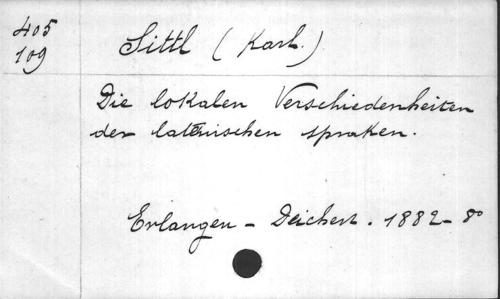 405
109
Sittl (Karl.)
Die lokalen Verschiedenheiten
der lateinischen spraken.
Erlangen - Deichert. 1882 - 8°